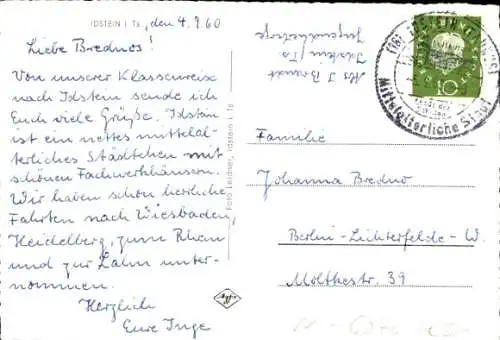 IDSTEIN i Ts., den 4.9.60
Liebe Brednos!
Von unserer Klassenreise
nach Idstein sende ich
Euch viele Grüße. Idstein
ist ein nettes mittelal-
terliches Städtchen mit
schönen Fachwerkhäusern.
Wir haben schon herrliche
Fahrten nach Wiesbaden,
Heidelberg, zum Rhein
und zur Lahn unter-
nommen.
Herzlich
Eure Inge
Foto Leidner, Idstein i Ts
Idstein/Ts
Jugendherberge
10
Mittelalterliche Stadt
Familie
Johanna Bredno
Berlin-Lichterfelde-W.
Moltkestr. 39